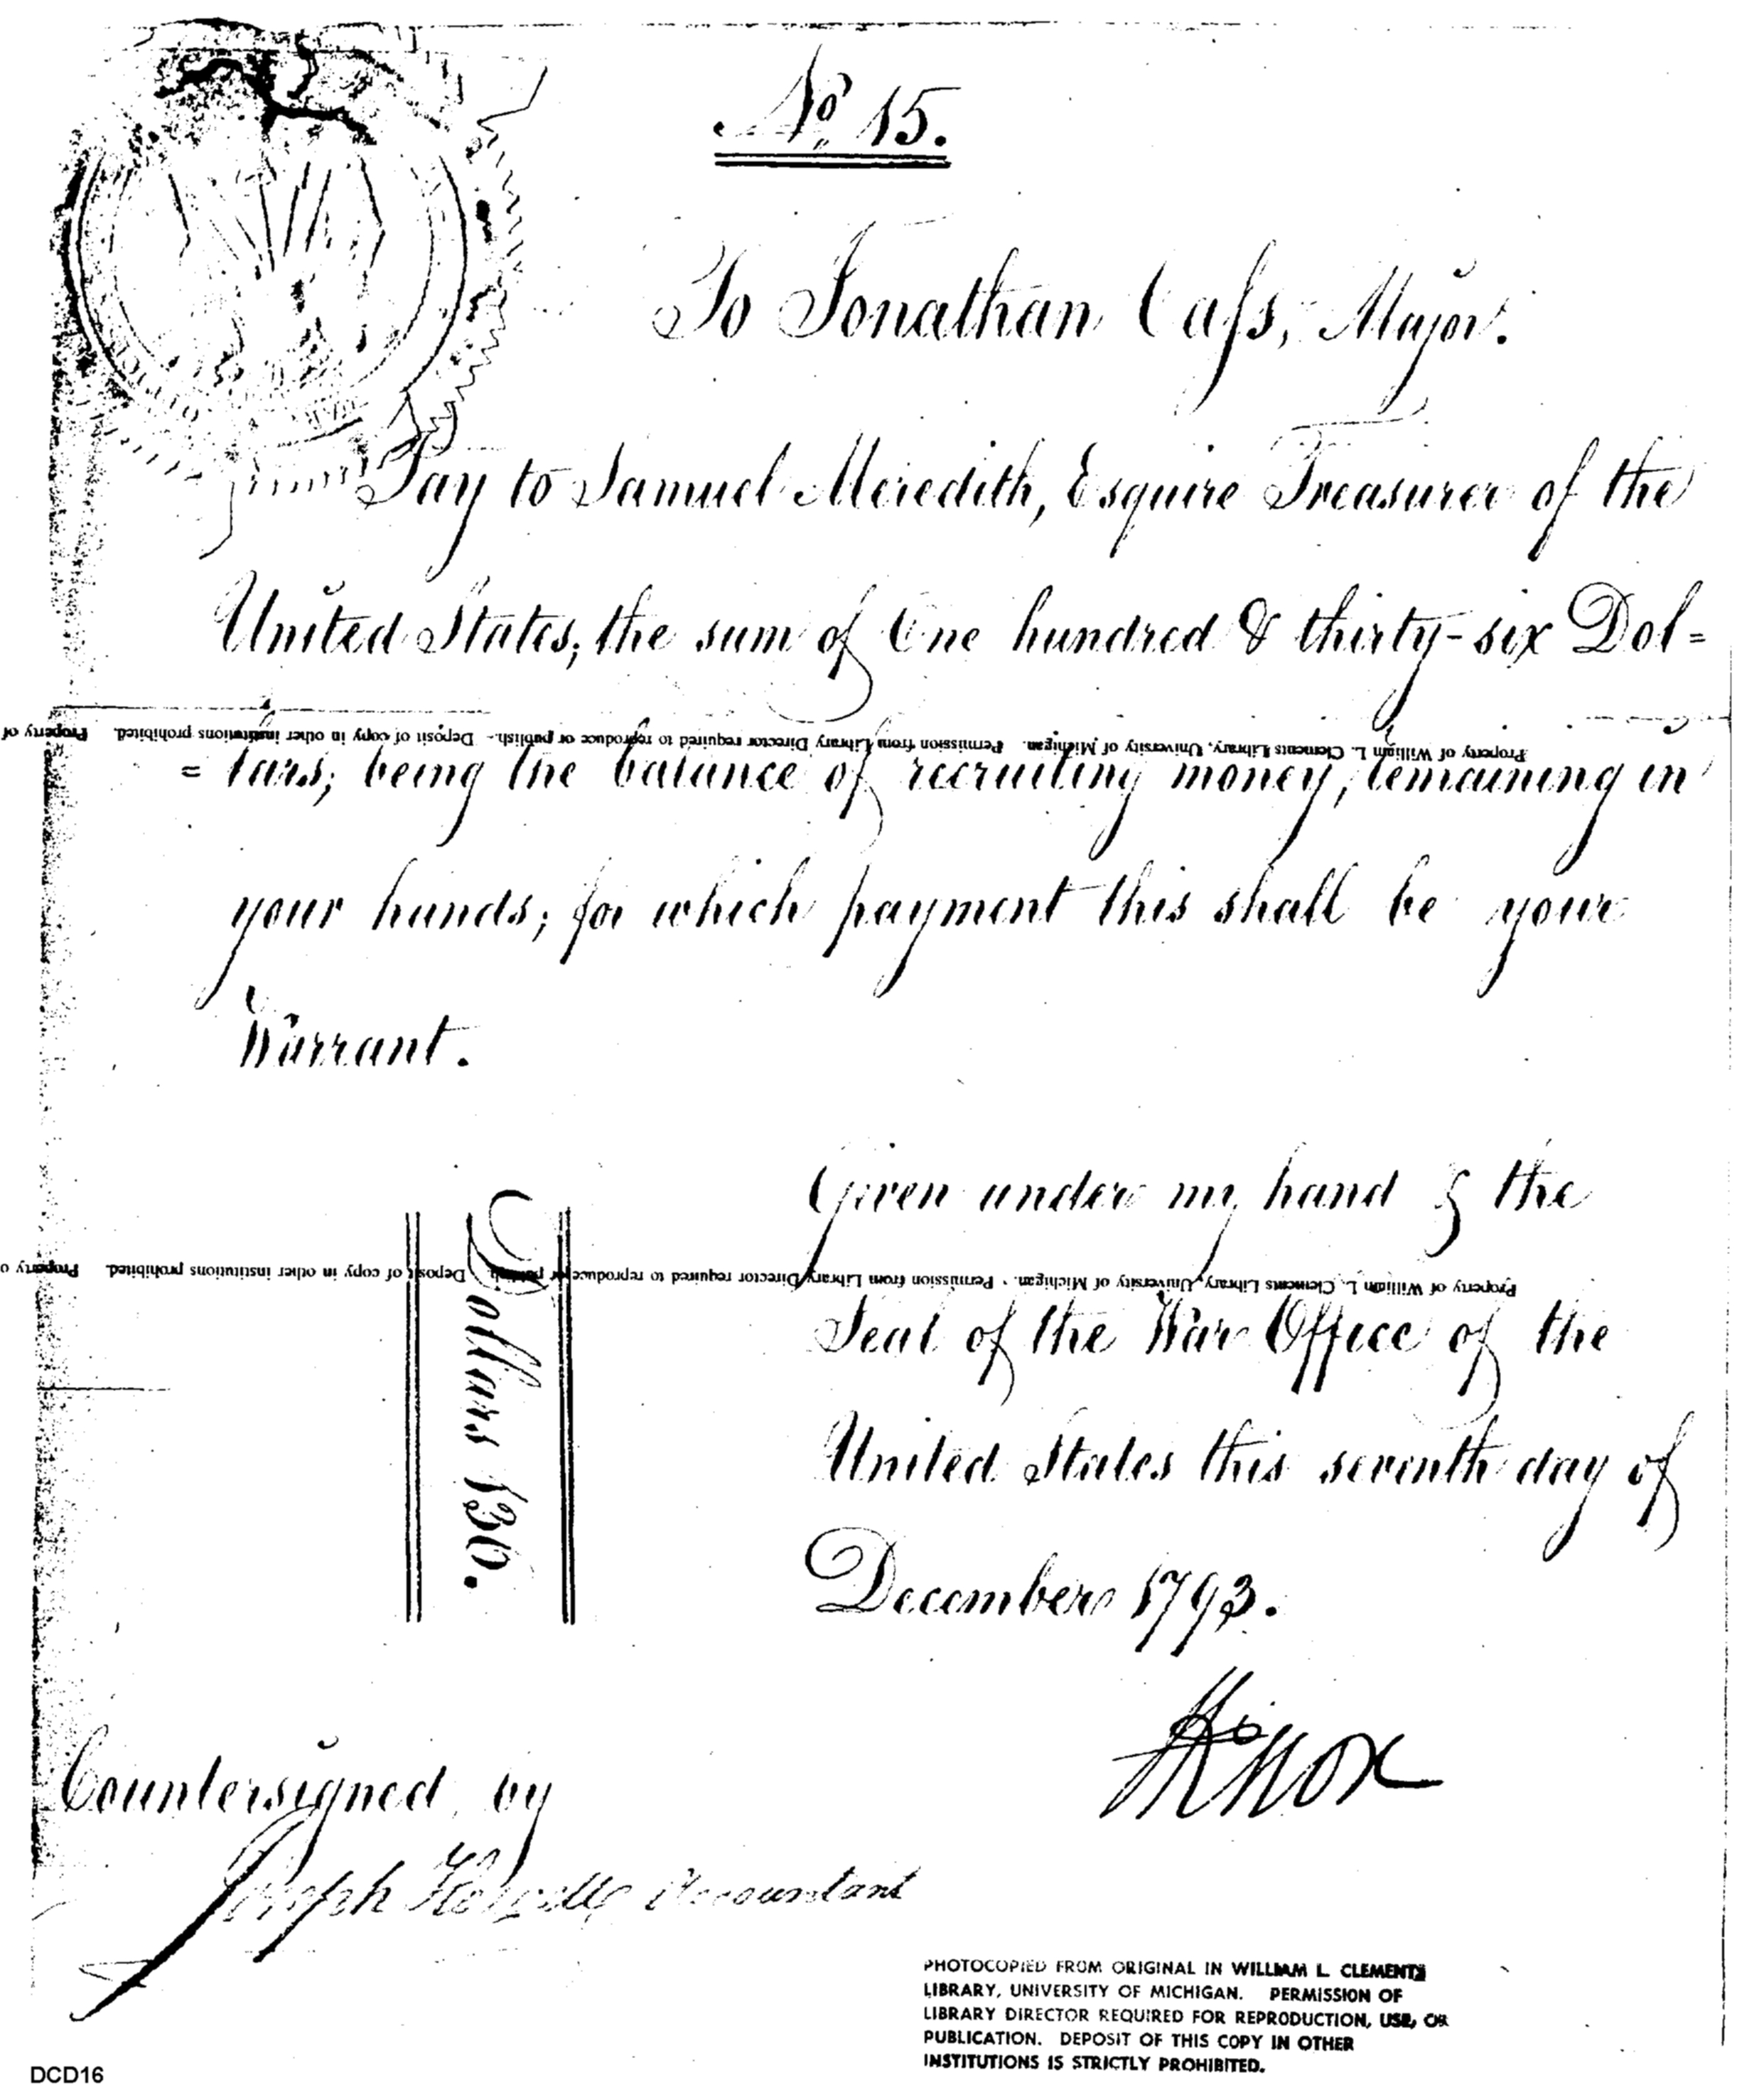 No. 15.
To Jonathan Cass, Major.
Pay to Samuel Meredith, Esquire Treasurer of the
United States, the sum of One hundred & thirty-six Dol=
Property of William L. Clements Library, University of Michigan. Permission from Library Director required to reproduce or publish. Deposit of copy in other institutions prohibited. Property of
= lars; being the balance of recruiting money, remaining in
your hands; for which payment this shall be your
Warrant.
Given under my hand & the
Property of William L. Clements Library, University of Michigan. Permission from Library Director required to reproduce or publish. Deposit of copy in other institutions prohibited. Property o
Seal of the War Office of the
United States this seventh day of
December 1793.
Dollars 136.
HKnox
Countersigned by
Joseph Howell Accountant
PHOTOCOPIED FROM ORIGINAL IN WILLIAM L. CLEMENTS
LIBRARY, UNIVERSITY OF MICHIGAN. PERMISSION OF
LIBRARY DIRECTOR REQUIRED FOR REPRODUCTION, USE, OR
PUBLICATION. DEPOSIT OF THIS COPY IN OTHER
INSTITUTIONS IS STRICTLY PROHIBITED.
DCD16